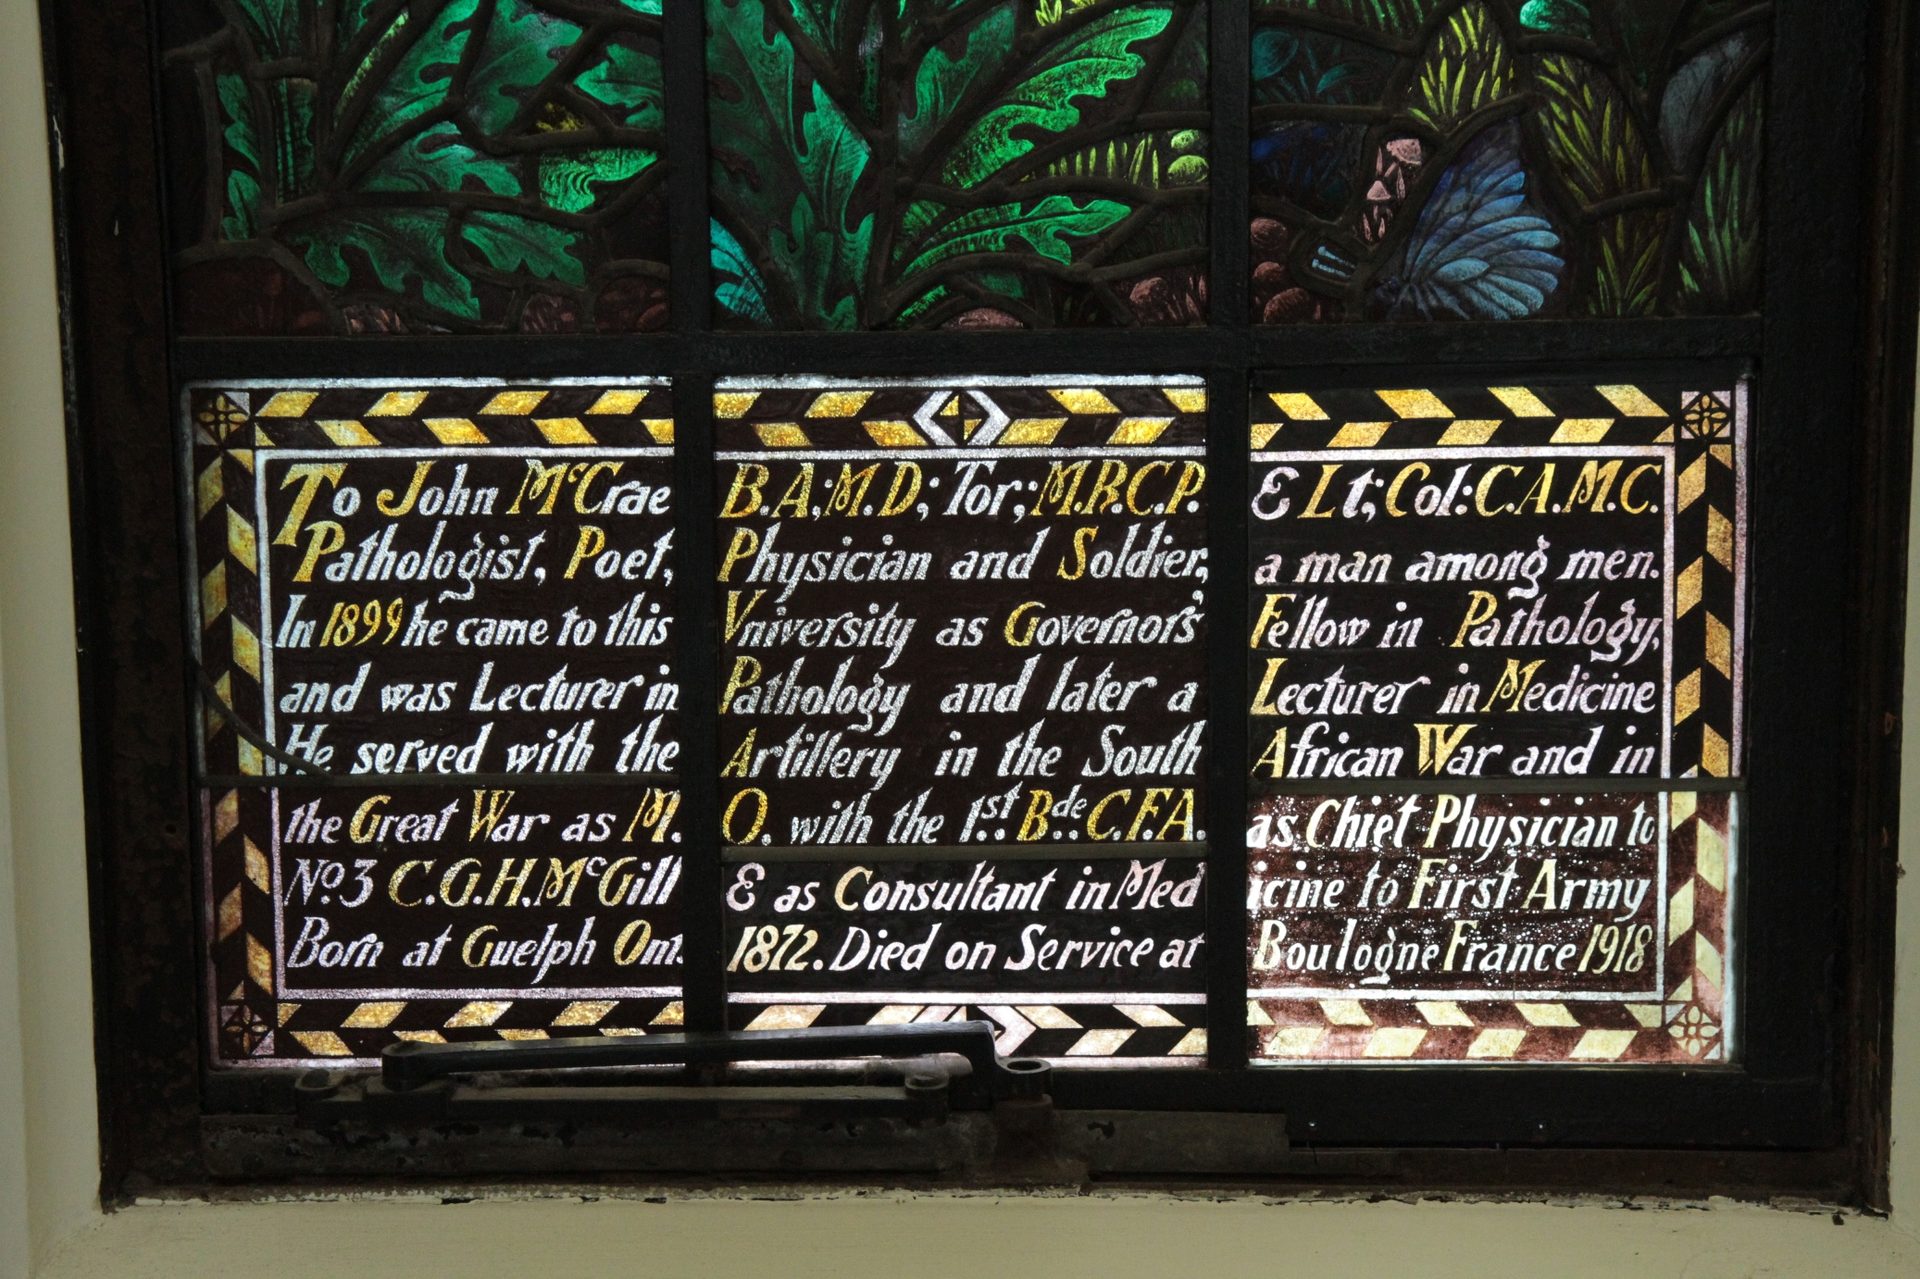 To John McCrae B.A.; M.D; Tor;; M.R.C.P. & Lt; Col: C.A.M.C.
Pathologist, Poet, Physician and Soldier, a man among men.
In 1899 he came to this Vniversity as Governor's Fellow in Pathology,
and was Lecturer in Pathology and later a Lecturer in Medicine
He served with the Artillery in the South African War and in
the Great War as M.O. with the 1st Bde C.F.A. as Chief Physician to
No. 3 C.G.H. McGill & as Consultant in Medicine to First Army
Born at Guelph Ont. 1872. Died on Service at Boulogne France 1918